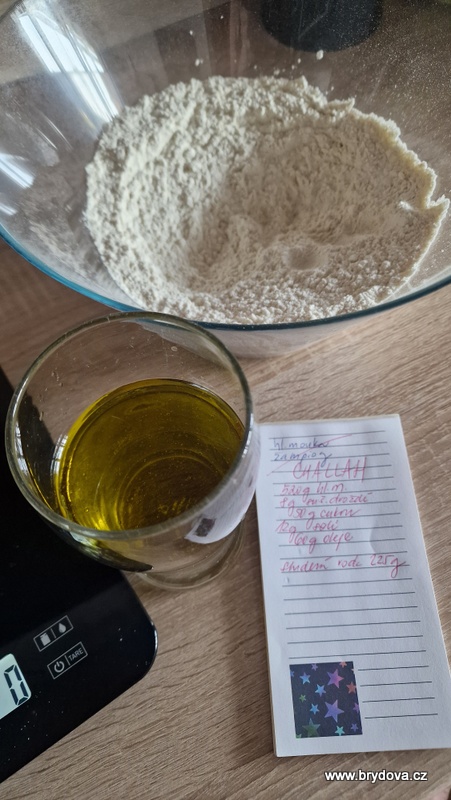 hl. mouka
CHALLAH
520g hl. m.
9g suš. droždí
50g cukru
12g soli
60g oleje
studená voda 225g
TARE
0
www.brydova.cz